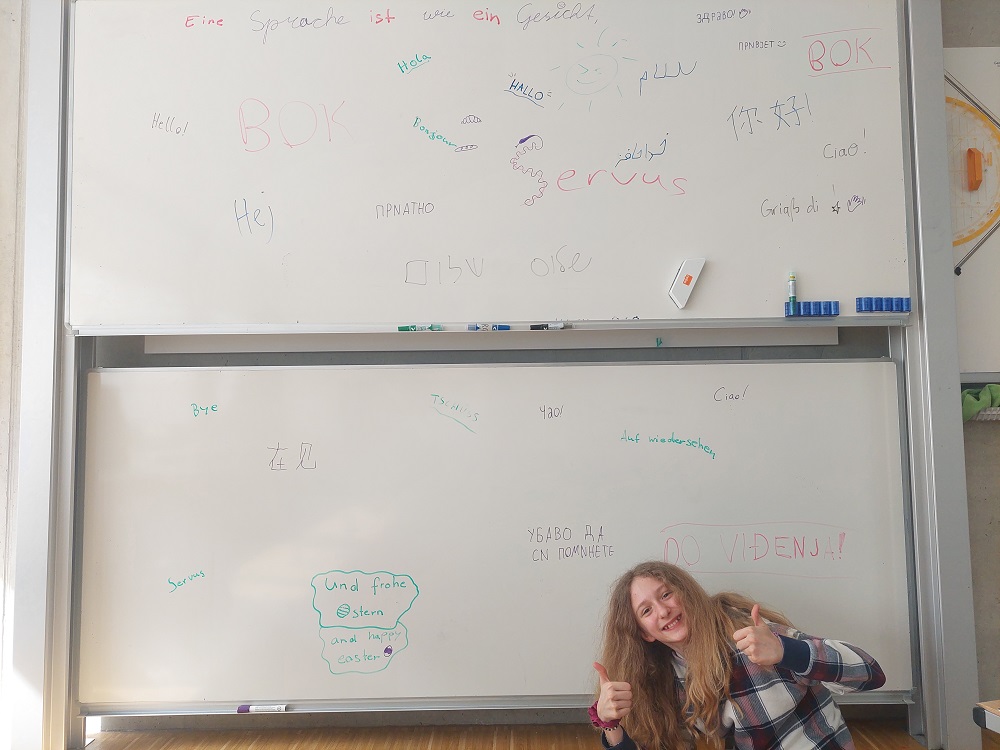 Eine Sprache ist wie ein Gesicht,
ЗДРАВО!
ПРИВЈЕТ
BOK
Hola
HALLO
سلام
Hello!
BOK
Bonjour
你好!
Ciao!
خداحافز
Servus
Hej
ПРИАТНО
Griaß di!
שלום
שלום
Bye
TSCHÜSS
ЧАО!
Ciao!
Auf wiedersehen
在见
УБАВО ДА
СИ ПОМИНЕТЕ
DO VIĐENJA!
Servus
Und frohe
Ostern
and happy
easter